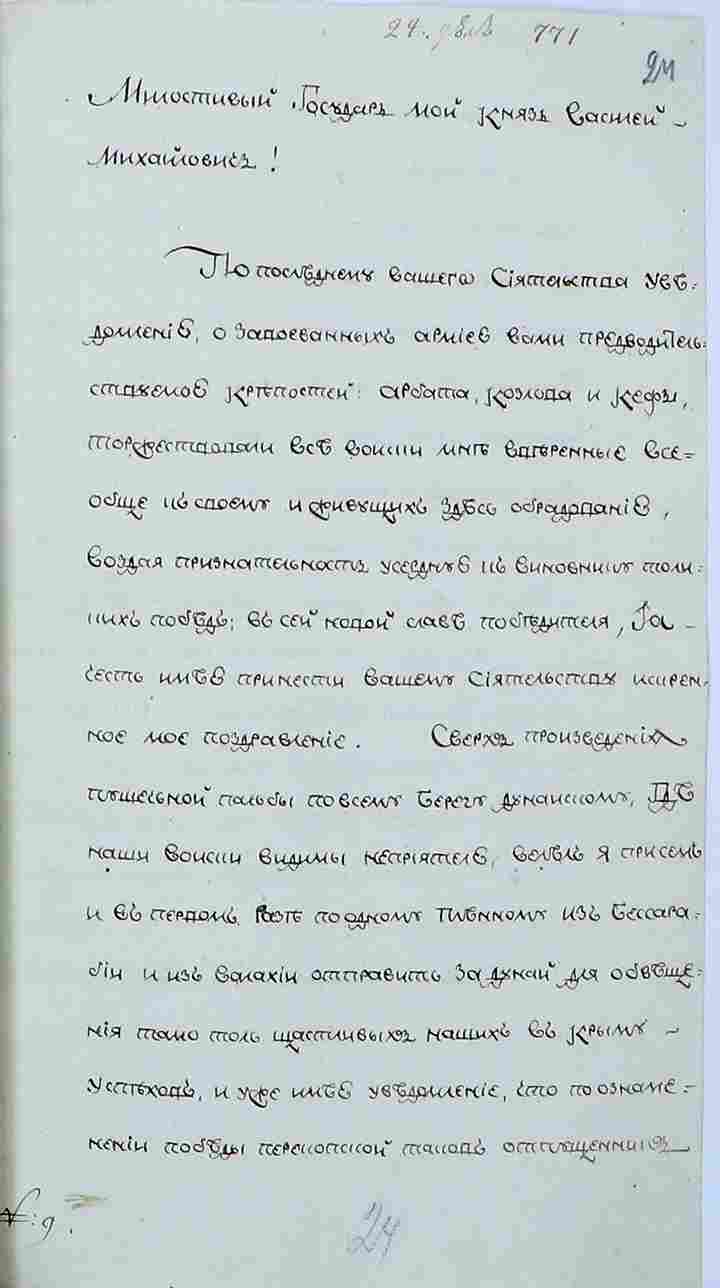 24. дѣлѣ 771
24
Милостивый Государь мой князь Василей
Михайловичъ!
По последнему вашего Сіятельства увѣ-
домленію, о завоеванныхъ арміею вами предводитель-
ствуемою крѣпостей: арбата, козлова и кефы,
торжествовали всѣ войски мнѣ ввѣренные все-
обще къ своему и живущихъ здѣсь обрадованію,
воздая признательность усердную къ виновнику толи-
кихъ побѣдъ; въ сей новой славѣ победителя, Я
честь имѣю принести вашему Сіятельству искрен-
ное мое поздравленіе. Сверхъ произведенія
пушечной пальбы по всему берегу дунайскому, гдѣ
наши войски видимы непріятелю, велѣлъ я при семъ
и въ первомъ разѣ по одному плѣнному изъ Бессара-
біи и изъ валахіи отправить за дунай для обвѣще-
нія тамо толь щастливыхъ нашихъ въ крыму
успѣховъ, и уже имѣю увѣдомленіе, что по ознаме-
неніи побѣды перекопской таковъ отпущенникъ
№: 9.
24